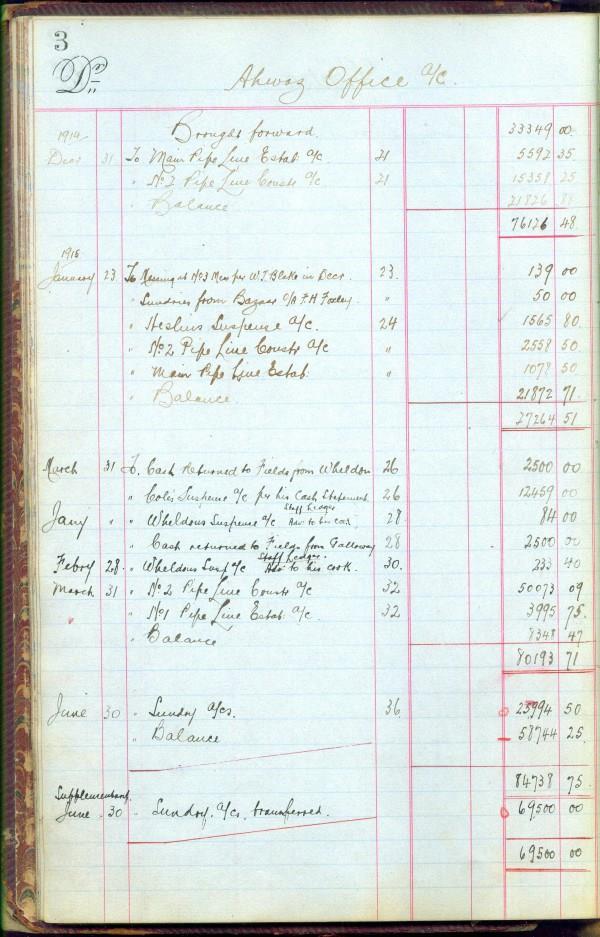 3
Dr
Ahwaz Office a/c.
1914 Brought forward. 33349 00
Decr 31 To Main Pipe Line Estab. a/c 21 5592 35
" No 2 Pipe Line Constr a/c 21 15358 25
" Balance 21826 88
76126 48
1915
January 23 To No 3 Mess per W.T. Blake in Decr. 23. 139 00
" Sundries from Bazaar O/A F.H. " 50 00
" Suspense a/c. 24 1565 80
" No. 2 Pipe Line Constr a/c " 2558 50
" Main Pipe Line Estab. " 1078 50
" Balance. 21872 71
27264 51
March 31 To Cash Returned to Fields from Wheldon 26 2500 00
" Coles Suspense a/c per his Cash Statement 26 12459 00
Staff Ledger
Jany " " Wheldons Suspense a/c Adv to his cook 28 84 00
" Cash returned to Fields from Galloway 28 2500 00
Staff Ledger.
Febry 28 " Wheldons Susp a/c Adv to his cook. 30. 233 40
March 31 " No 2 Pipe Line Constr a/c 32 50073 09
" " No 1 Pipe Line Estab. a/c. 32 3995 75
" Balance 8348 47
80193 71
June 30 " Sundry a/cs. 36 25994 50
" Balance 58744 25
84738 75
Supplementary
June 30 " Sundry a/cs. transferred. 69500 00
69500 00